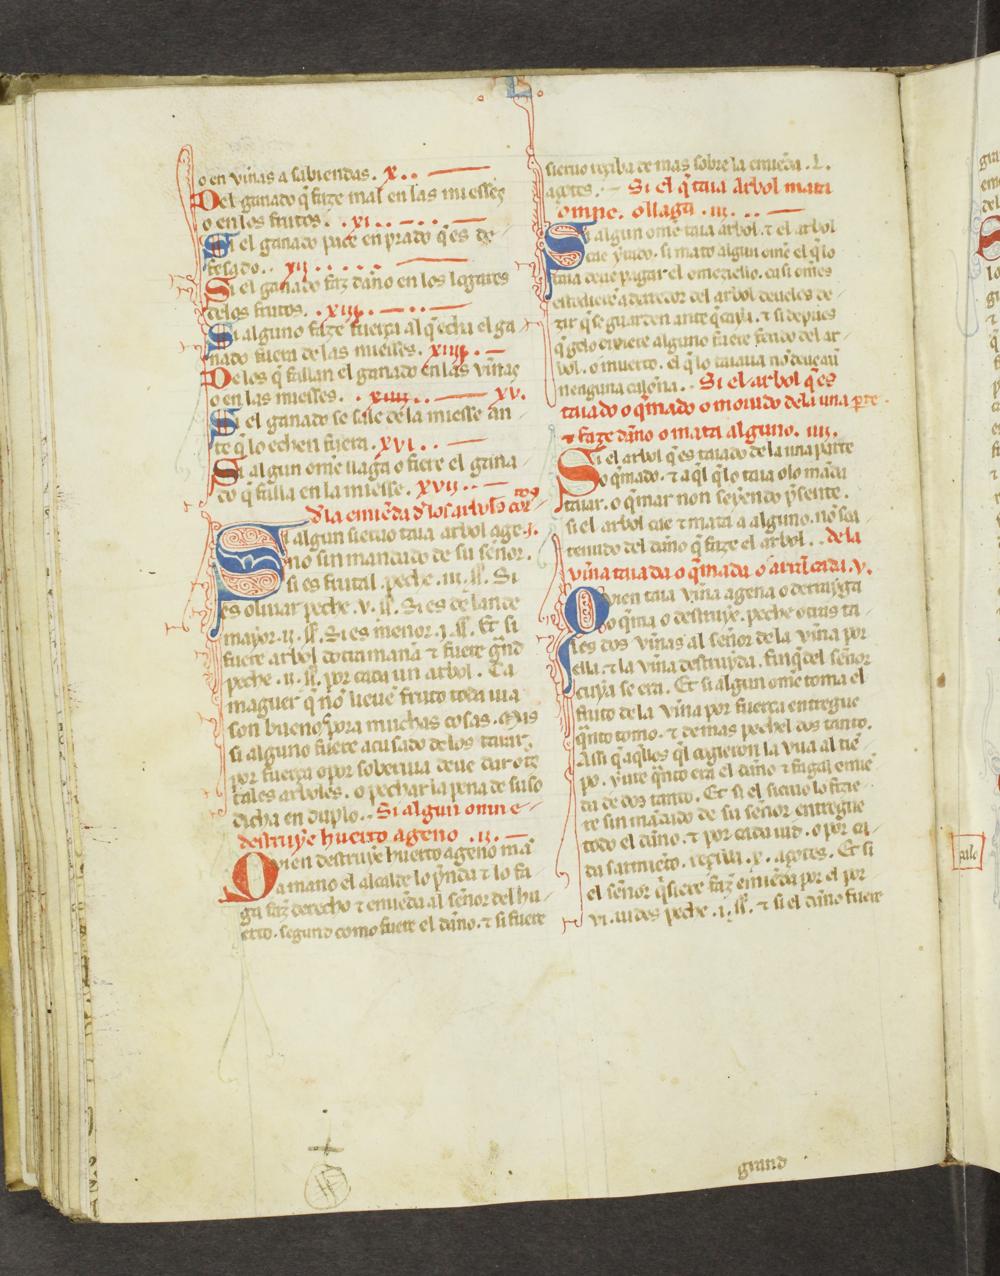 L
o en viñas a sabiendas. x..
Del ganado q̃ faze mal en las miesses
o en los frutos. .xi...
Si el ganado pace en prado q̃ es de
fesado.. xij.....
Si el ganado faz daño en los logares
delos frutos. .xiij.
Si alguno faze fuerça al q̃ echa el ga
nado fuera de las miesses. xiiij.
De los q̃ fallan el ganado en las viñas
o en las miesses. . xiiij. xv.
Si el ganado se sale de la miesse an
te q̃ lo echen fuera. xvi..
Si algun ome llaga o fiere el gana
do q̃ falla en la miesse. xvij..
dla emiẽda dlos arboles cor
tos
Si algun sieruo taia arbol age .j.
no sin mandado de su señor.
si es frutal. peche .iij. ss̃. Si
es oliuar peche .v. ss̃. Si es de lande
mayor .ij. ss̃. Si es menor .j. ss̃. Et si
fuere arbol dotra mana ⁊ fuere grãd
peche .ij. ss̃. por cada un arbol. Ca
maguer q̃ nõ lieue fruto toda uia
son buenos pora muchas cosas. Mas
si alguno fuere acusado de los taiar,
por fuerça o por soberuia deue dar ot̃
tales arboles. o pechar la pena de suso
dicha en duplo.. Si algun omne
destruye huerto ageno .ij.
Qvien destruye huerto ageno mã
a mano el alcalde lo pñda ⁊ lo fa
ga faz̃ derecho ⁊ emieda al señor del hu
erto. segund como fuere el daño. ⁊ si fuere
sieruo reçiba de mas sobre la emieda .L.
açotes. Si el q̃ taia arbol mata
omne. o llaga .iij. ..
Si algun ome taia arbol. ⁊ el arbol
cae yrado. si mato algun ome el q̃ lo
taia deue pagar el omezelio. ca si omes
estodiere aderredor del arbol deueles de
zir q̃ se guarden ante q̃ caya. ⁊ si depues
q̃ gelo dixiere alguno fuere ferido del ar
bol. o muerto. el q̃ lo taiaua nõ deue auer
nenguna caloña.. Si el arbol q̃ es
taiado o q̃mado o mouido dela una parte
⁊ faze daño o mata alguno. iiij.
Si el arbol q̃ es taiado de la una parte
o q̃mado. ⁊ aq̃l q̃ lo taia o lo mãda
taiar. o q̃mar non seyendo pˢente.
si el arbol cae ⁊ mata a alguno. nõ sea
tenudo del daño q̃ faze el arbol.. de la
viña taiada o q̃mada o arrãcada. v.
Qvien taia viña agena o derrayga
o q̃ma o destruye. peche otras ta
les dos viñas al señor de la viña por
ella. ⁊ la viña destruyda. finq̃ del señor
cuya se era. Et si algun ome toma el
fruto de la viña por fuerça entregue
q̃nto tomo. ⁊ demas pechel dos tanto.
Assi q̃ aq̃llos q̃l cogieron la vua al tiẽ
po. q̃nto era el daño ⁊ fagal emie
da de dos tanto. Et si el sieruo lo fizie
re sin mãdado de su señor entregue
todo el daño. ⁊ por cada uid. o por ca
da sarmiẽto. reçiba .x. açotes. Et si
el señor q̃siere faz̃ emieda por el por
vi. uides peche .j. ss̃. ⁊ si el daño fuere
grand